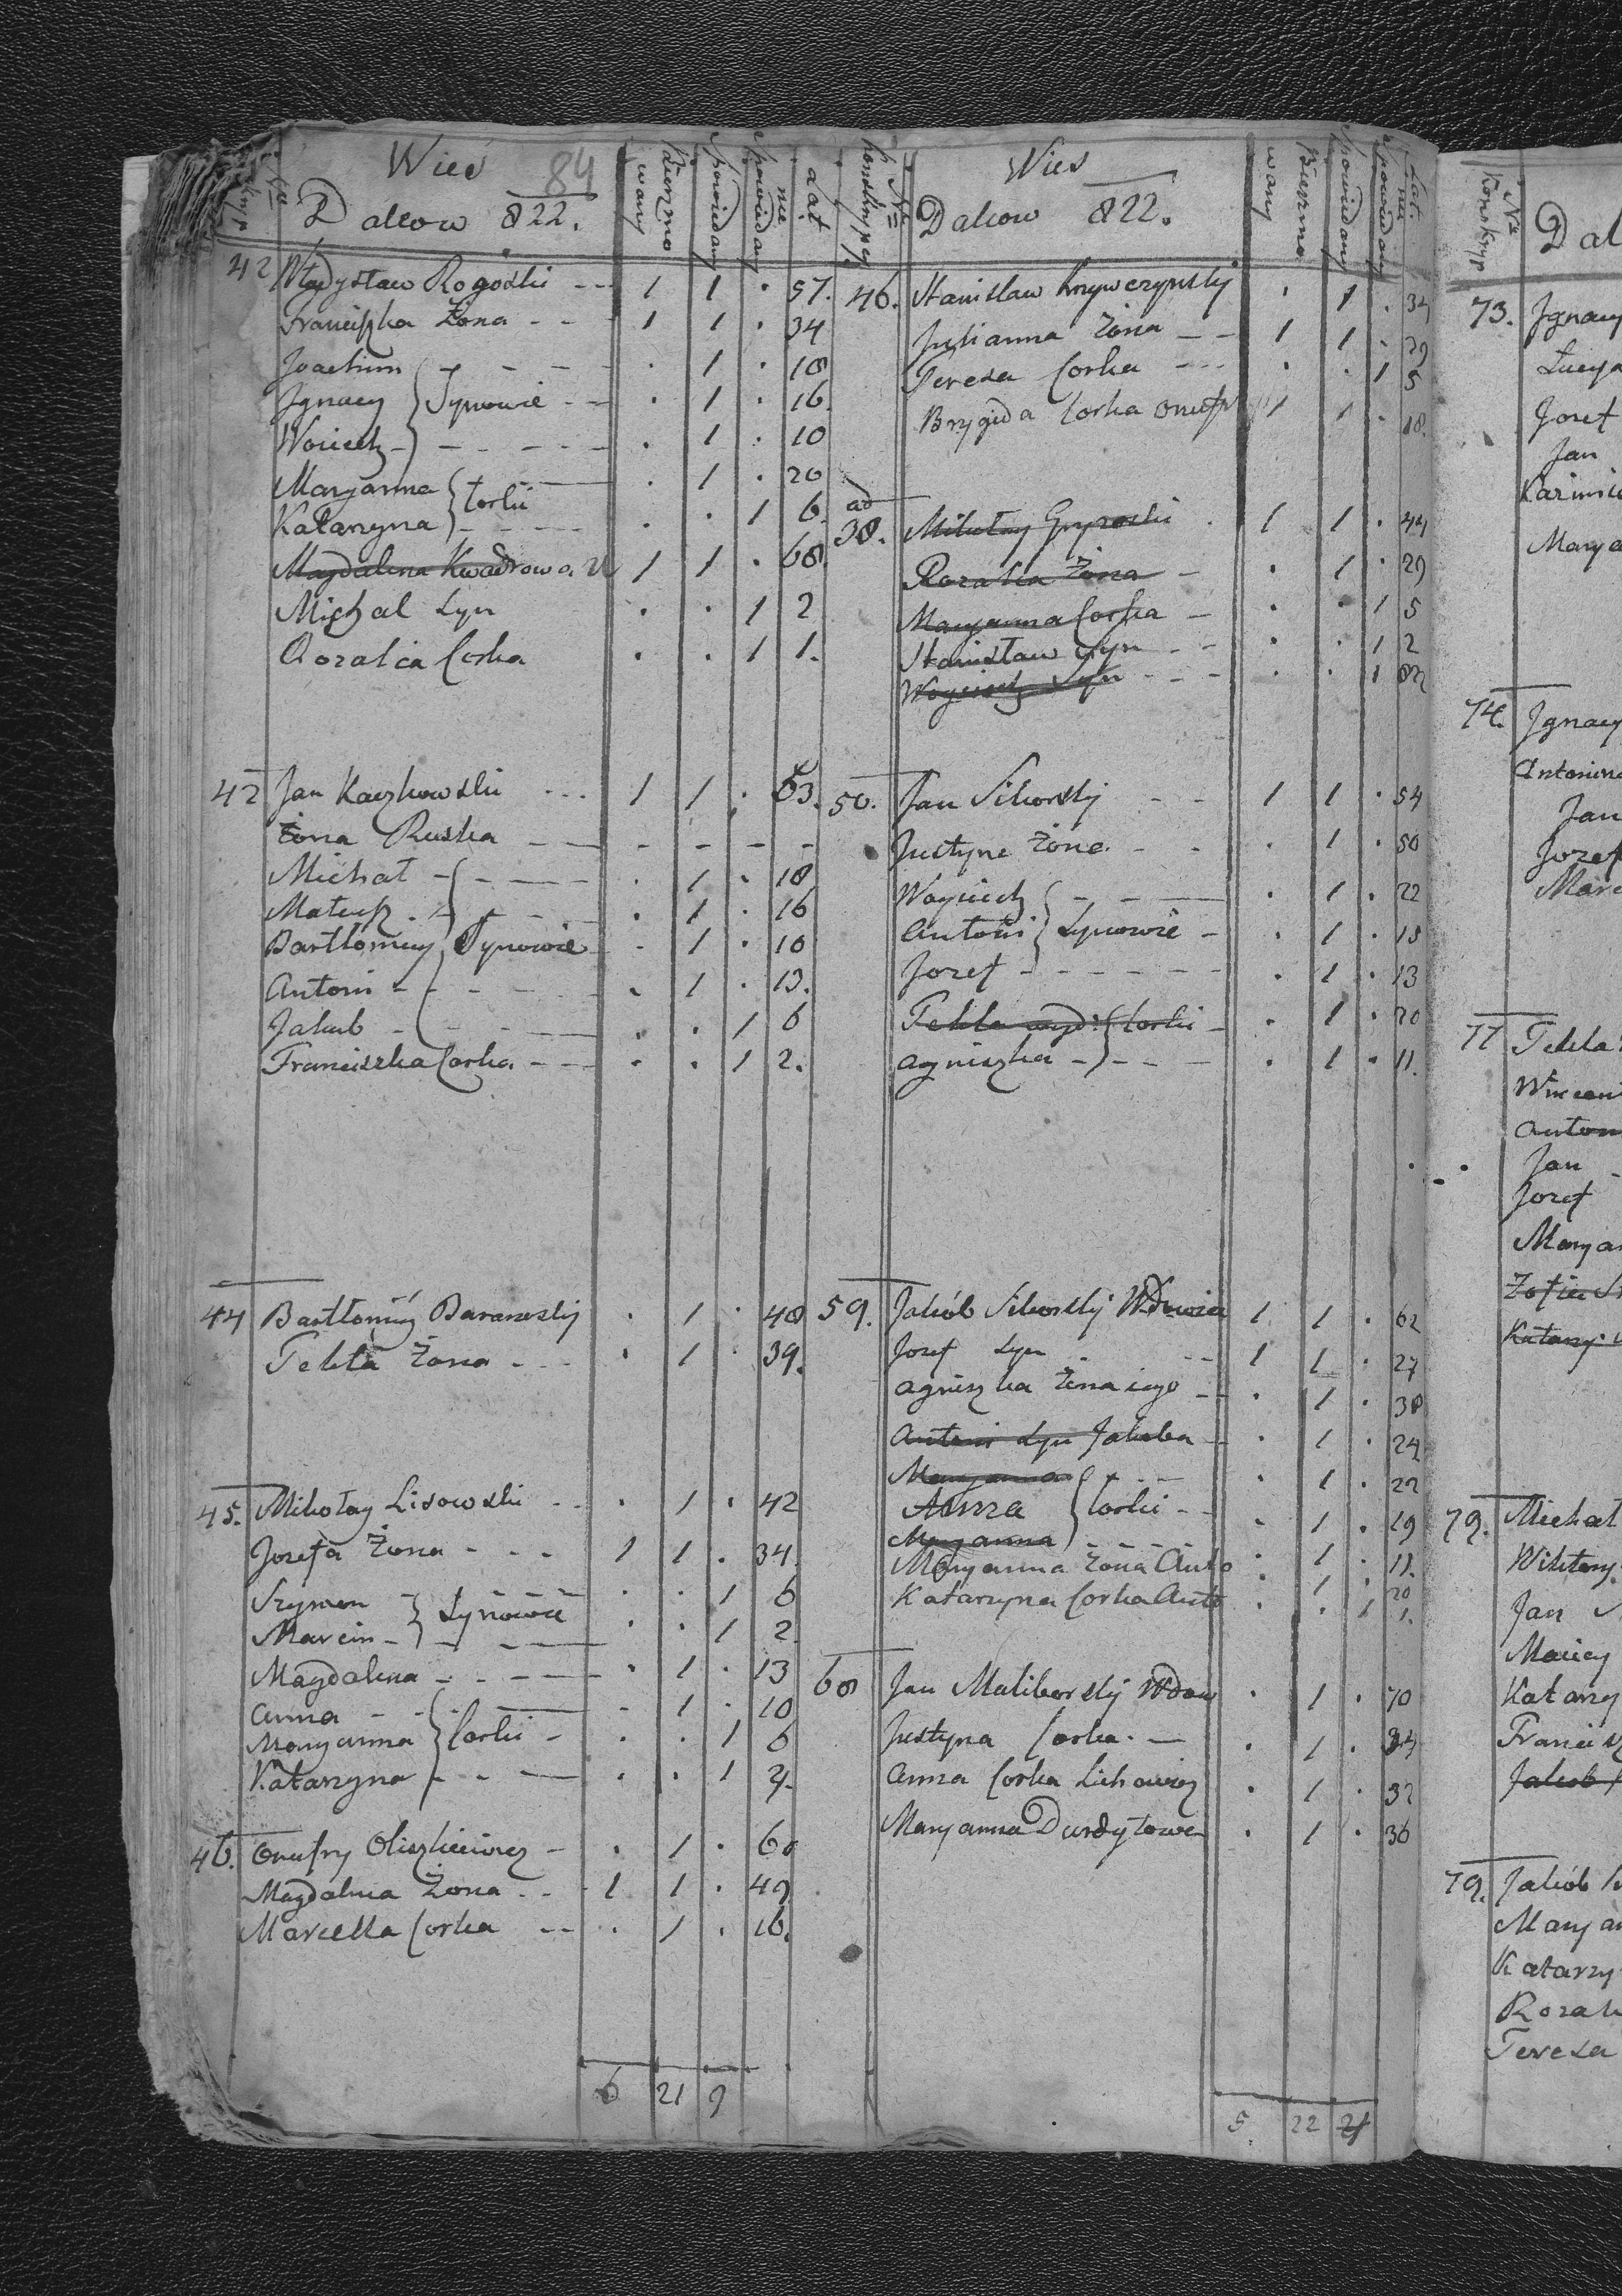 Wieś 84
Dalcow 822.
Nro
Bierzmo
wany
Spowiedany
nie
Lat
42 Władysław Rogoski 1 1 . 57.
Franciszka Żona 1 1 . 34
Joachim . 1 . 18
Jgnacy } Synowie . 1 . 16.
Woiciech . 1 . 10
Maryanna . 1 . 20
Katarzyna } Corki . . 1 6
Magdalena Kwadrowa 1 1 . 68.
Michal Syn . . 1 2
Rozalia Corka . . 1 1.
42 Jan Kaczkowski 1 1 . 53.
Żona Ruska
Michał . 1 . 18
Mateusz . 1 . 16
Bartłomiey } Synowie . 1 . 10
Antoni . 1 . 13.
Jakub . . 1 6
Franciszka Corka . . 1 2.
44 Bartłomiey Baranoskij . 1 . 48
Tekla Żona . 1 . 39.
45. Mikołay Lisowski . 1 . 42
Jozefa Żona 1 1 . 34.
Szymon . . 1 6
Marcin } Synowie . . 1 2
Magdalena . 1 . 13
Anna . 1 . 10
Maryanna } Corki . . 1 6
Katarzyna . . 1 4.
46. Onufry Oliszkiewicz . 1 . 60
Magdalena Żona 1 1 . 49
Marcella Corka . 1 . 16.
6 21 9
Nro
Konskrypcy
Wies
Dalcow 822.
Bierzmo
wany
Spowiedany
nie
Lat.
46. Stanislaw Krzywczynskij . 1 . 34
Julianna Żona 1 1 . 29
Teresa Corka . . 1 5
Brygida Corka Onufr 1 1 . 18.
ad
38. Mikołay 1 1 . 44
Rozalia Żona . 1 . 29
Maryanna Corka . . 1 5
Stanisław Syn . . 1 2
Woyciech Syn . . 1
50. Jan Sikorskij 1 1 . 54
Justyna Żona . 1 . 50
Woyciech . 1 . 22
Antoni } Synowie . 1 . 18
Jozef . 1 . 13
Tekla } Corki . 1 . 20
Agniszka . 1 . 11.
59. Jakób Sikorskij Wdowiec 1 1 . 62
Jozef Syn 1 1 . 27
Agniszka Żona iego . 1 . 38
Antoni Syn Jakuba . 1 . 24
Maryanna . 1 . 22
Anna } Corki . 1 . 19
Maryanna . 1 . 11.
Maryanna Żona Anto . 1 . 20
Katarzyna Corka Anto . . 1 1.
60 Jan Maliborskij Wdow . 1 . 70
Justyna Corka . 1 . 34
Anna Corka . 1 . 32
Maryanna . 1 . 36
5. 22
Nro
Konskryp
Dal
73. Jgnacy
Jozef
Jan
Kazimie
Marya
74. Jgnacy
Antonina
Jan
Jozef
77 Tekla
Wincen
Anton
Jan
Jozef
Marya
Zofia
Katarzy
79. Michał
Jan
Maciey
Katarzy
Francisz
Jakub
79. Jakób
Marya
Katarzy
Rozal
Teresa